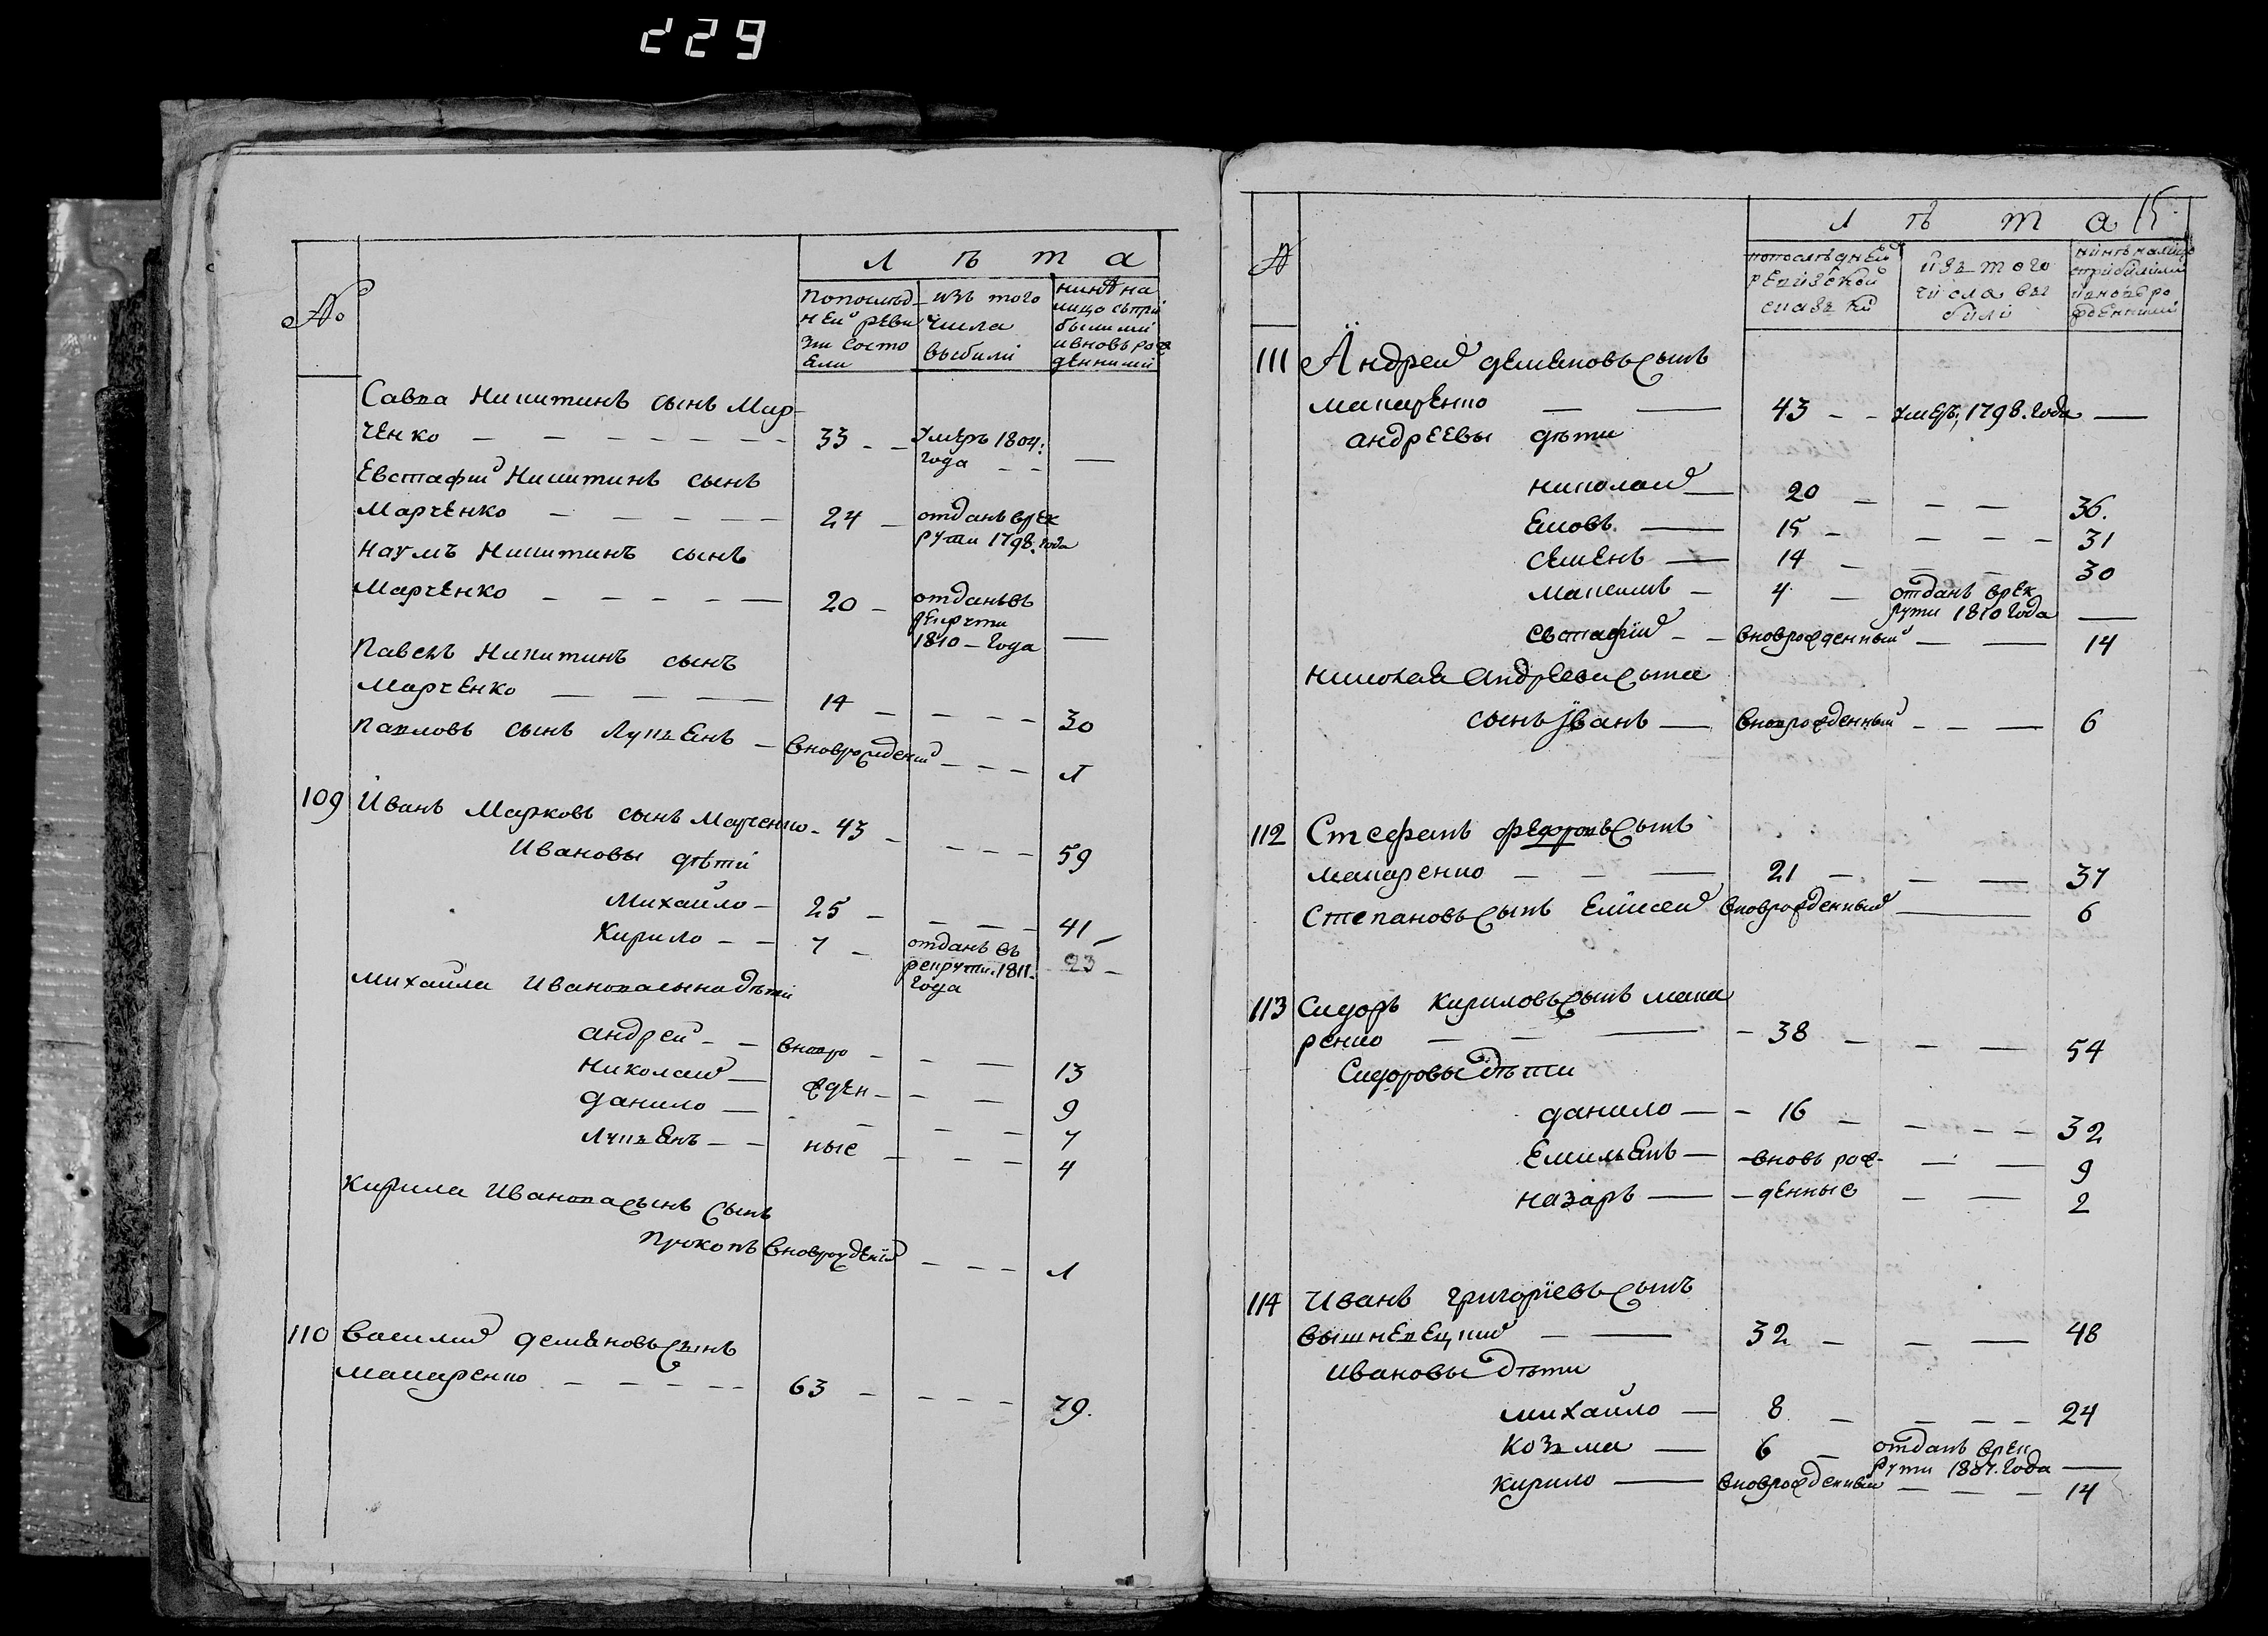 229
№
Л ѣ т а
По послѣд-
ней реви
зіи состо
яли
изъ того
числа
выбыли
нинѣ на
лицо съ при
былыми
и вновь рож
денными
Савва Никитинъ сынъ Мар-
ченко — 33 — умеръ 1804:
года —
Евстафий Никитинъ сынъ
Марченко — 24 — отданъ врек
рути 1798. года
Наумъ Никитинъ сынъ
Марченко — 20 — отданъ въ
рекрути
1810 — года —
Павелъ Никитинъ сынъ
Марченко — 14 — 30
Павловъ сынъ Лукъянъ — вноврожденый — 1
109 Иванъ Марковъ сынъ Марченко — 43 — 59
Ивановы дѣти
Михайло — 25 — 41
Кирило — 7 — отданъ въ
рекрути. 1811. 23 —
года
Михайла Иванова сына дѣти
андрей — вновро — 13
Николай — жден — 9
данило — 7
Лукъянъ — ные — 4
Кирила Иванова сынъ сынъ
Прокопъ вноврожденый — 1
110 Василий демяновъ сынъ
макаренко — 63 — 79.
№
Л ѣ т а 15.
по послѣдней
ревизской
сказъки
изъ того
числа вы
были
нинѣ налицо
с прибилими
и вновь ро
жденними
111 Андрей демяновъ сынъ
макаренко — 43 — умеръ, 1798. года —
андреевы дѣти
николай — 20 — 36.
яковъ — 15 — 31
семенъ — 14 — 30
максимъ — 4 — отданъ врек
рути 1810 года —
евстафій — вноврожденный — 14
николая андреева сына
сынъ иванъ — вноврожденный — 6
112 Стефанъ федоровъ сынъ
макаренко — 21 — 37
Степановъ сынъ Елисей вноврожденный — 6
113 Сидоръ Кириловъ сынъ мака
ренко — 38 — 54
Сидоровы дѣти
данило — 16 — 32
Емильянъ — вновь рож- — 9
назаръ — денные — 2
114 Иванъ григоріевъ сынъ
вышневецкий — 32 — 48
ивановы дѣти
михайло — 8 — 24
козъма — 6 — отданъ врек
рути 1807. года —
кирило — вноврожденный — 14